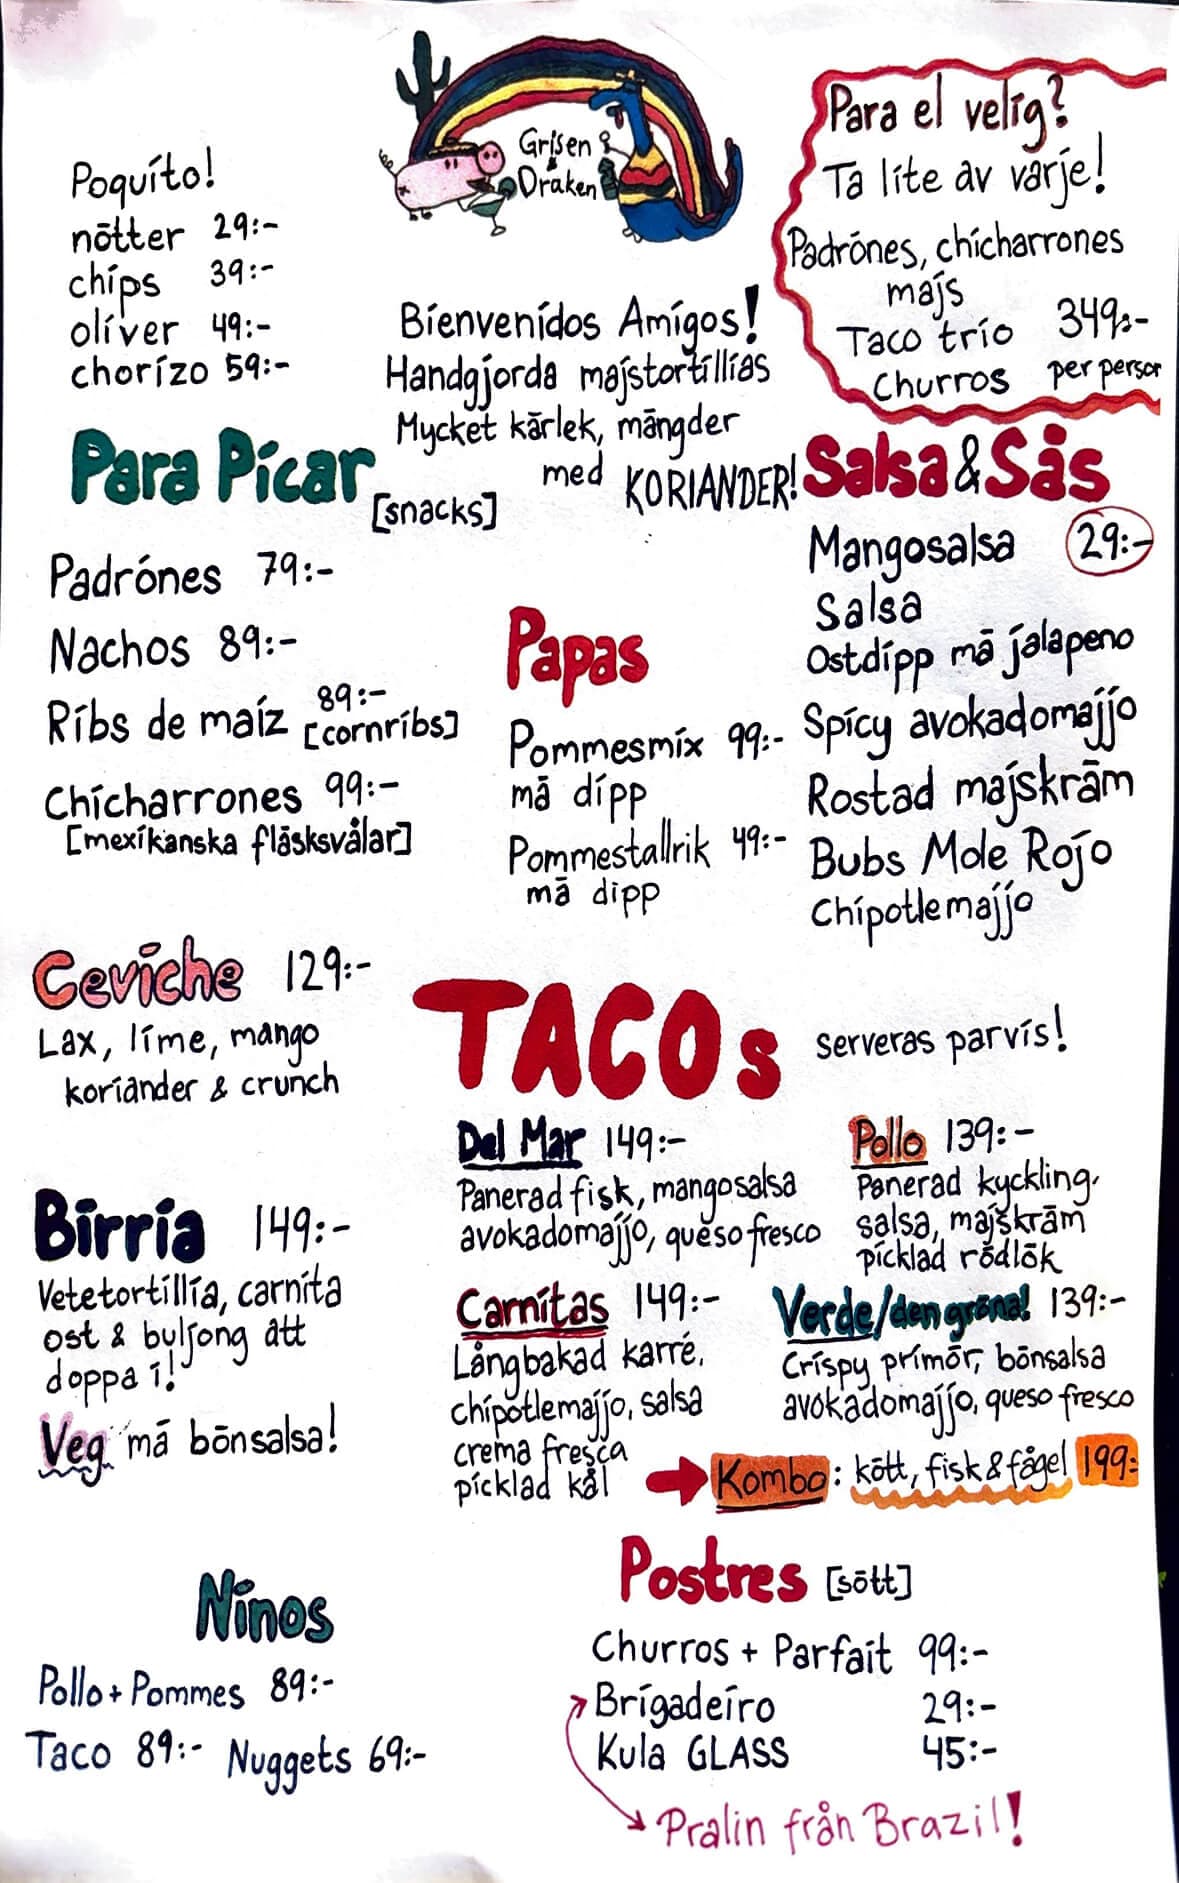 Grisen
&
Draken
Poquito!
nötter 29:-
chips 39:-
oliver 49:-
chorizo 59:-
Bienvenidos Amigos!
Handgjorda majstortillias
Mycket kärlek, mängder
med KORIANDER!
Para el velig?
Ta lite av varje!
Padrónes, chicharrones
majs
Taco trio 349:-
churros per person
Para Picar
[snacks]
Padrónes 79:-
Nachos 89:-
Ribs de maiz 89:-
[cornribs]
Chicharrones 99:-
[mexikanska fläsksvålar]
Papas
Pommesmix 99:-
mä dipp
Pommestallrik 49:-
mä dipp
Salsa & Sås
Mangosalsa 29:-
Salsa
Ostdipp mä jalapeno
Spicy avokadomajjo
Rostad majskräm
Bubs Mole Rojo
Chipotlemajjo
Ceviche 129:-
Lax, lime, mango
koriander & crunch
Birria 149:-
Vetetortillia, carnita
ost & buljong att
doppa i!
Veg mä bönsalsa!
TACOs serveras parvis!
Del Mar 149:-
Panerad fisk, mangosalsa
avokadomajjo, queso fresco
Pollo 139:-
Panerad kyckling,
salsa, majskräm
picklad rödlök
Carnitas 149:-
Långbakad karré,
chipotlemajjo, salsa
crema fresca
picklad kål
Verde/den gröna! 139:-
Crispy primör, bönsalsa
avokadomajjo, queso fresco
Kombo: kött, fisk & fågel 199:-
Ninos
Pollo + Pommes 89:-
Taco 89:- Nuggets 69:-
Postres [sött]
Churros + Parfait 99:-
Brigadeiro 29:-
Kula GLASS 45:-
Pralin från Brazil!